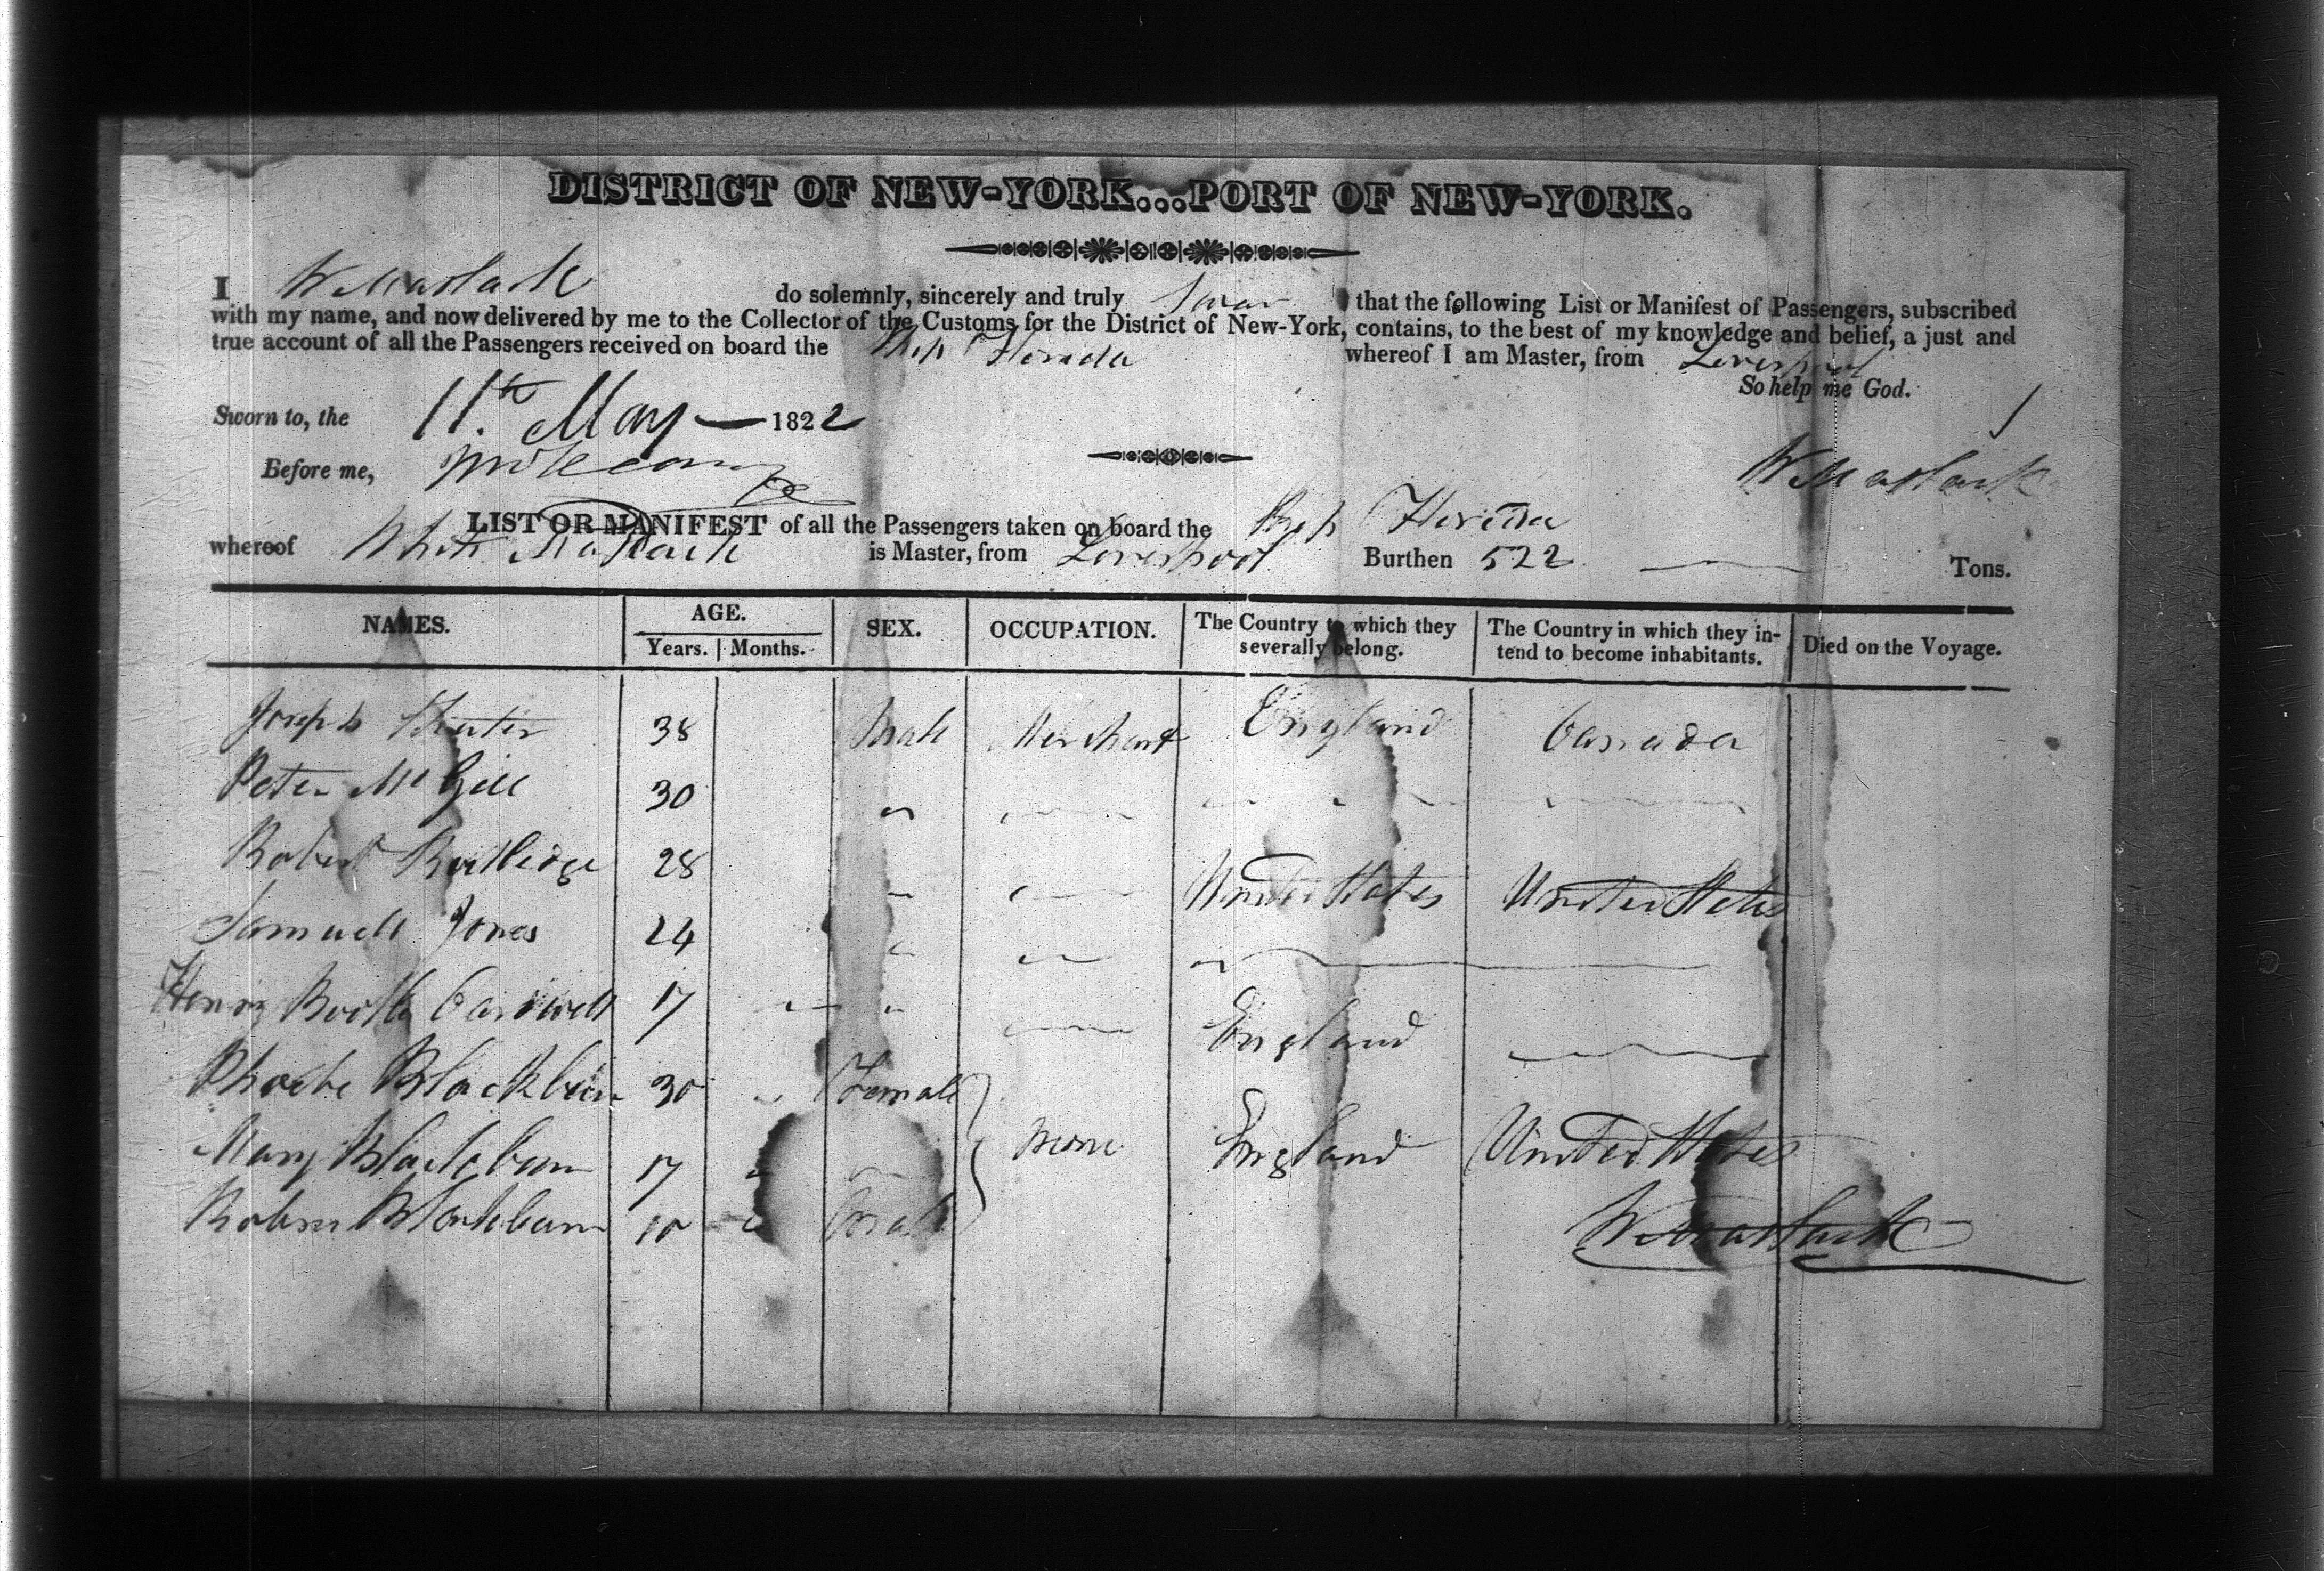 DISTRICT OF NEW-YORK...PORT OF NEW-YORK.
I W Matlack do solemnly, sincerely and truly Swear that the following List or Manifest of Passengers, subscribed
with my name, and now delivered by me to the Collector of the Customs for the District of New-York, contains, to the best of my knowledge and belief, a just and
true account of all the Passengers received on board the Ship Florida whereof I am Master, from Liverpool
So help me God.
Sworn to, the 11th May — 1822
Before me,
W Matlack
LIST OR MANIFEST of all the Passengers taken on board the Ship Florida
whereof White Matlack is Master, from Liverpool Burthen 522 Tons.
NAMES. AGE. SEX. OCCUPATION. The Country to which they severally belong. The Country in which they intend to become inhabitants. Died on the Voyage.
Years. Months.
Joseph 38 Male Merchant England Canada
Peter McGill 30 " "
Robert Rutledge 28 " " United States United States
Samuell Jones 24 " " "
Henry Booth 17 " " England "
Phoebe Blackburn 30 " Female
Mary Blackburn 17 " " None England United States
Robert Blackburn 10 " Male
W Matlack